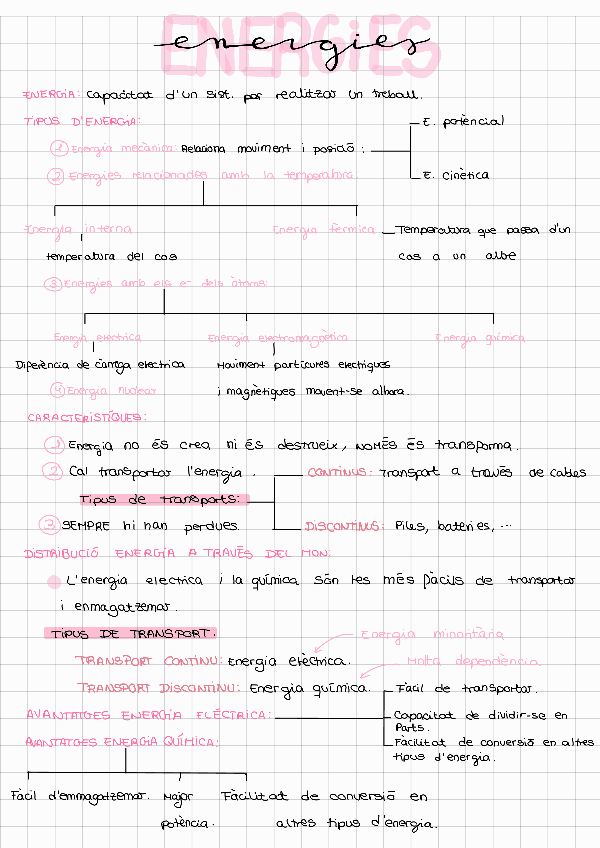 ENERGIES
energies
ENERGIA: Capacitat d'un sist. per realitzar un treball.
TIPUS D'ENERGIA:
E. potèncial
① Energia mecànica: Relaciona moviment i posició :
E. Cinètica
② Energies relacionades amb la temperatura:
Energia interna
Energia tèrmica
Temperatura que passa d'un
temperatura del cos
cos a un altre
③ Energies amb els e⁻ dels àtoms:
Energia electrica
Energia electromagnètica
Energia química
Diferència de càrrega electrica
Moviment partícules electriques
④ Energia nuclear
i magnètiques movent-se alhora.
CARACTERISTÍQUES:
① Energia no és crea ni és destrueix, NOMÉS ÉS transforma.
② Cal transportar l'energia.
CONTINUS: Transport a través de cables
Tipus de transports:
③ SEMPRE hi han perdues.
DISCONTINUS: Piles, bateries, ...
DISTRIBUCIÓ ENERGIA A TRAVÉS DEL MON:
L'energia electrica i la química són les més fàcils de transportar
i enmagatzemar.
TIPUS DE TRANSPORT.
Energia minoritària
TRANSPORT CONTINU: Energia elèctrica.
Molta dependència.
TRANSPORT DISCONTINU: Energia química.
Facil de transportar.
AVANTATGES ENERGIA ELÉCTRICA:
Capacitat de dividir-se en
Parts.
AVANTATGES ENERGIA QUÍMICA:
Fàcilitat de conversió en altres
tipus d'energia.
Fàcil d'emmagatzemar.
Major
potència.
Fàcilitat de conversió en
altres tipus d'energia.